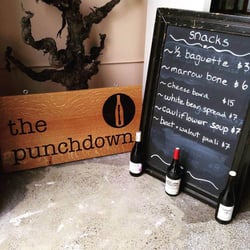 the
punchdown
snacks
~ ½ baguette $3
~ marrow bone $6
~ cheese board $15
~ white bean spread $7
~ cauliflower soup $7
~ beet + walnut $7